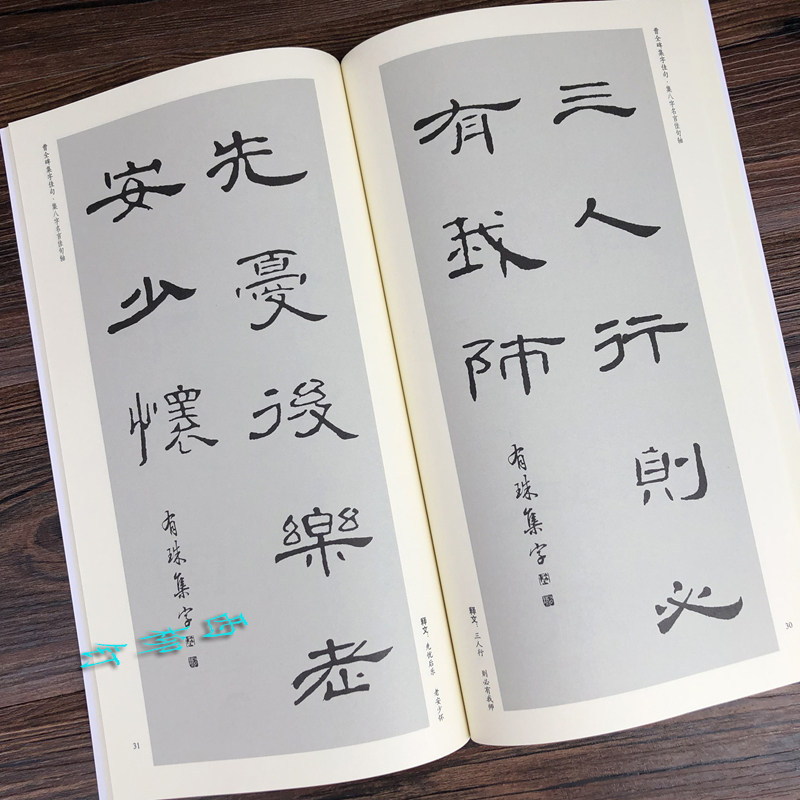 曹全碑集字佳句·集八字名言佳句轴
三人行則必
有我師
有珠集字
释文：三人行　则必有我师
30
先憂後樂老
安少懷
有珠集字
释文：先忧后乐　老安少怀
曹全碑集字佳句·集八字名言佳句轴
31